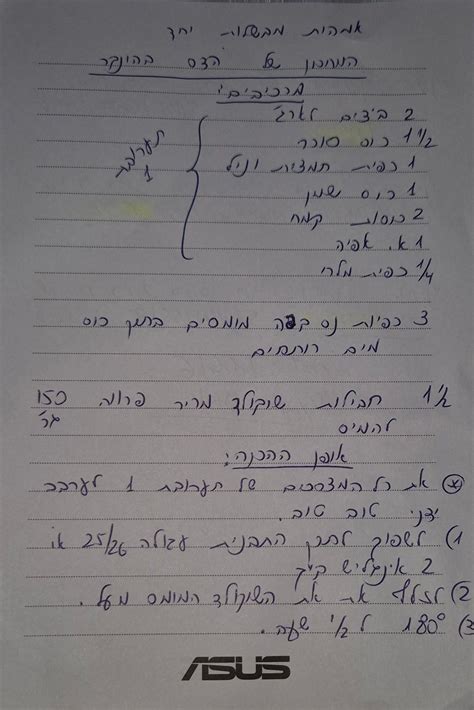 אמהות מבשלות יחד
המתכון של הדס בהינקר
מרכיבים:
2 ביצים לארג'
1 1/2 כוס סוכר
1 כפית תמצית וניל
1 כוס שמן
2 כוסות קמח
1 א. אפיה
1/4 כפית מלח
תערובת 1
3 כפיות נס מומסים בתוך כוס
מים רותחים
1 1/2 חבילות שוקולד מריר פרווה 150 גר'
להמיס
אופן ההכנה:
את כל המצרכים של תערובת 1 לערבב
ידני טוב טוב.
1) לשפוך לתוך התבנית עגולה 25/26 או
2 אינגליש קייק
2) לזלף את את השוקולד המומס מעל.
3) 180° ל 1/2 שעה.
ASUS